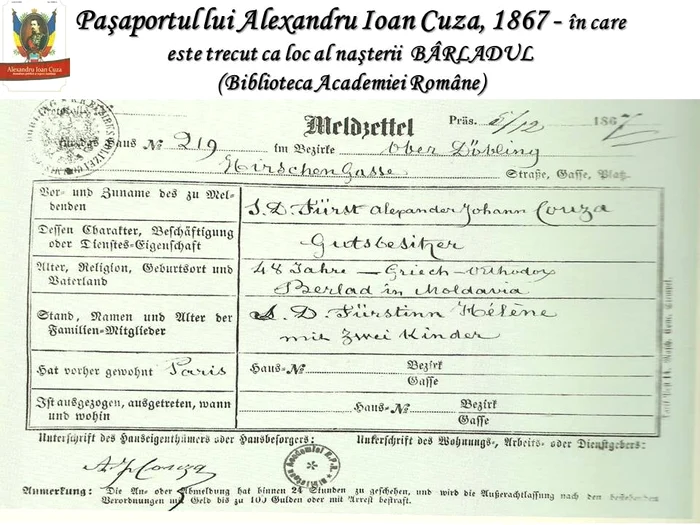 Paşaportul lui Alexandru Ioan Cuza, 1867 - în care
este trecut ca loc al naşterii BÂRLADUL
(Biblioteca Academiei Române)
Alexandru Ioan Cuza
Meldzettel
Präs. 5/12 1867
für das Haus No 219 im Bezirke Ober Döbling
Hirschengasse Straße, Gasse, Platz.
Vor- und Zuname des zu Mel-
denden
S. D. Fürst Alexander Johann Couza
Dessen Charakter, Beschäftigung
oder Dienstes-Eigenschaft
Gutsbesitzer
Alter, Religion, Geburtsort und
Vaterland
48 Jahre – Griech-Orthodox
Berlad in Moldavia
Stand, Namen und Alter der
Familien-Mitglieder
I. D. Fürstinn Hélène
mit zwei Kinder
Hat vorher gewohnt Paris
Haus-No
Bezirk
Gasse
Ist ausgezogen, ausgetreten, wann
und wohin
Haus-No
Bezirk
Gasse
Unterschrift des Hauseigenthümers oder Hausbesorgers:
Unterschrift des Wohnungs-, Arbeits- oder Dienstgebers:
A J Couza
Anmerkung: Die An- oder Abmeldung hat binnen 24 Stunden zu geschehen, und wird die Außerachtlassung nach den bestehenden
Verordnungen mit Geld bis zu 100 Gulden oder mit Arrest bestraft.